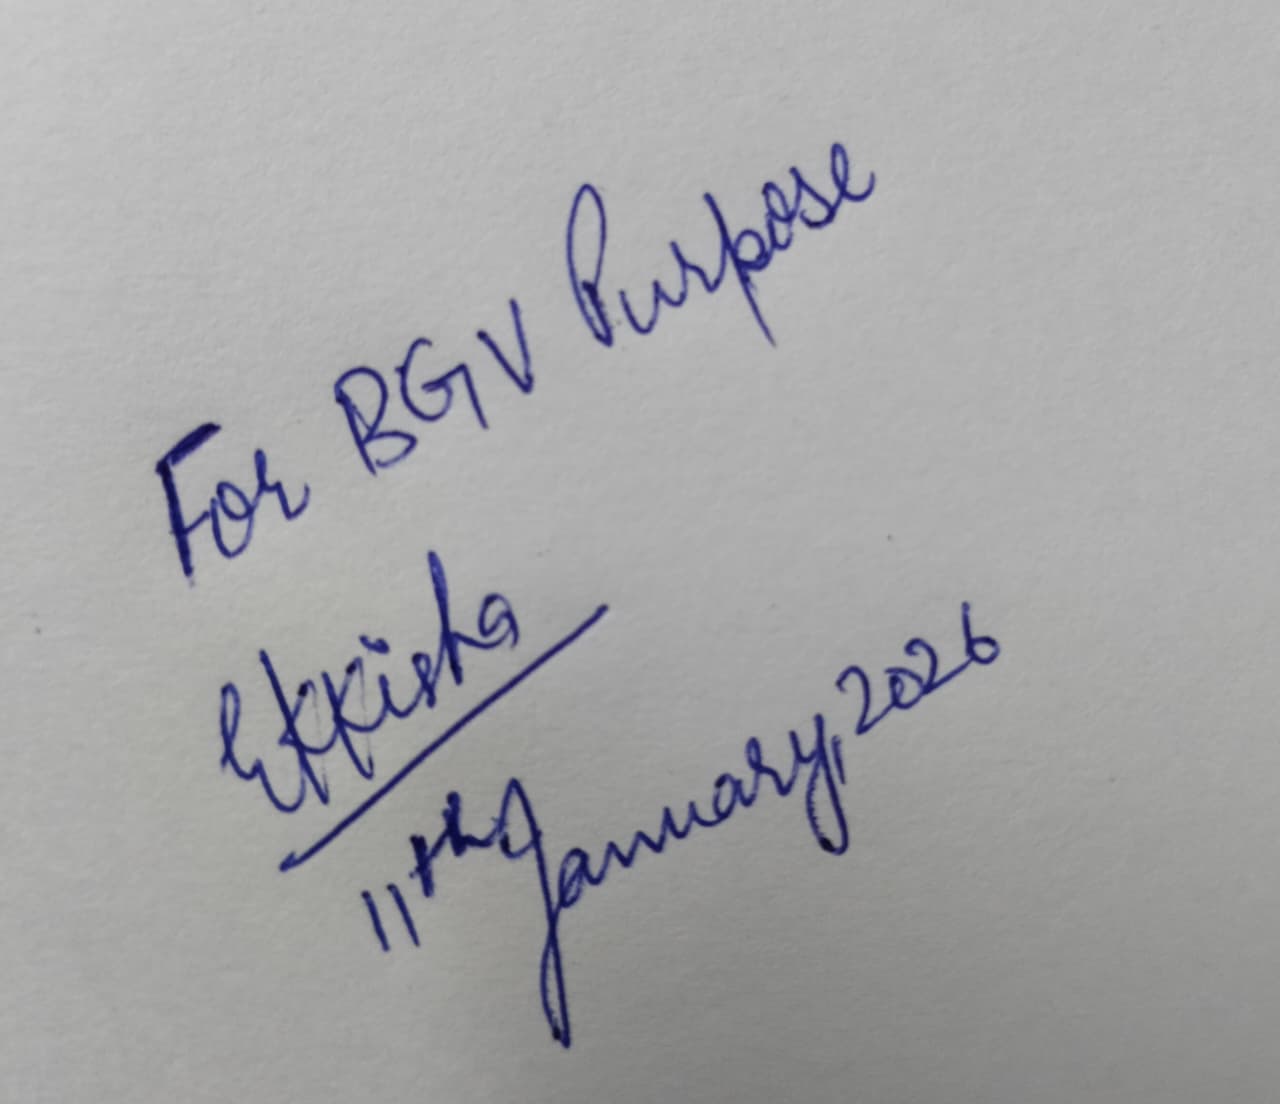 For BGV Purpose
Ekkisha
11th January, 2026